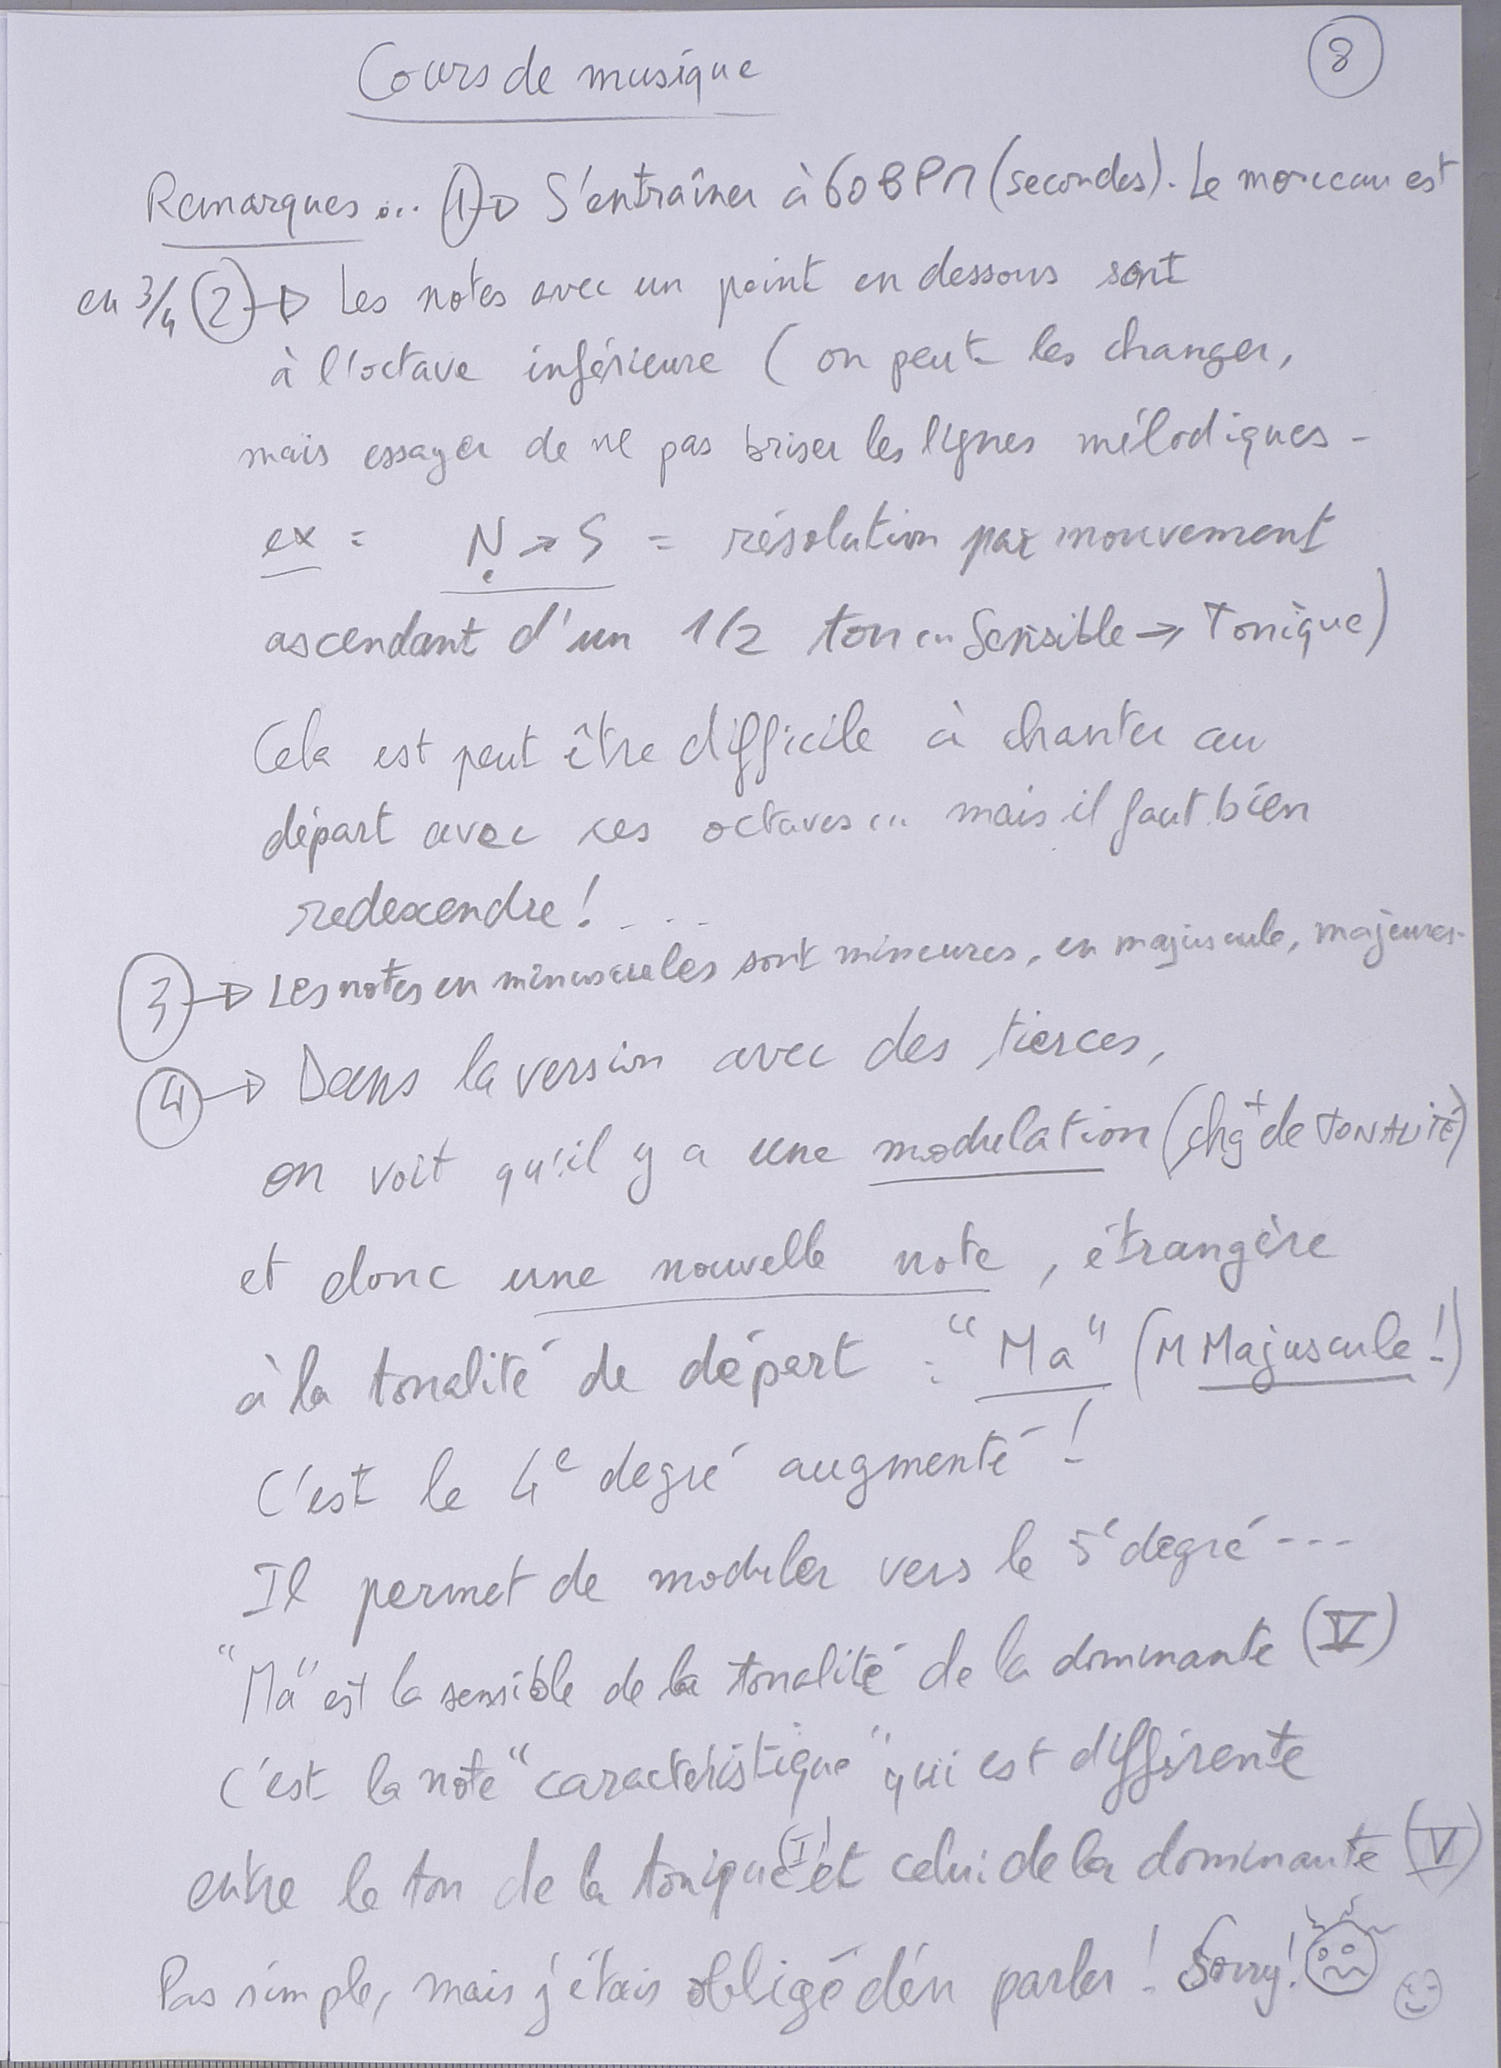 Cours de musique
8
Remarques... 1 → S'entraîner à 60 BPM (secondes). Le morceau est
en 3/4 2 → Les notes avec un point en dessous sont
à l'octave inférieure (on peut les changer,
mais essayer de ne pas briser les lignes mélodiques -
ex = Ṇ → S = résolution par mouvement
ascendant d'un 1/2 ton ... Sensible → Tonique)
Cela est peut être difficile à chanter au
départ avec ces octaves... mais il faut bien
redescendre! ...
3 → Les notes en minuscules sont mineures, en majuscule, majeures.
4 → Dans la version avec des tierces,
on voit qu'il y a une modulation (chgt de TONALITÉ)
et donc une nouvelle note, étrangère
à la tonalité de départ : "Ma" (M Majuscule!)
C'est le 4e degré augmenté!
Il permet de moduler vers le 5e degré ---
"Ma" est la sensible de la tonalité de la dominante (V)
C'est la note "caractéristique" qui est différente
entre le ton de la tonique (I) et celui de la dominante (V)
Pas simple, mais j'étais obligé d'en parler! Sorry!